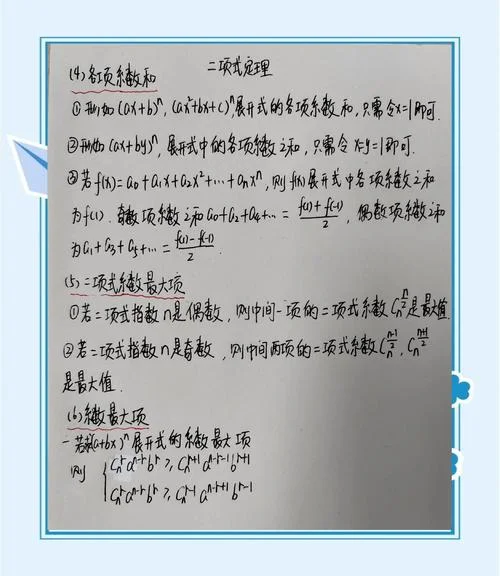 二项式定理
(4)各项系数和
①形如(ax+b)ⁿ,(ax²+bx+c)ⁿ展开式的各项系数和,只需令x=1即可.
②形如(ax+by)ⁿ,展开式中的各项系数之和,只需令x=y=1即可.
③若f(x)=a₀+a₁x+a₂x²+…+aₙxⁿ,则f(x)展开式中各项系数之和
为f(1).奇数项系数之和a₀+a₂+a₄+…=\frac{f(1)+f(-1)}{2},偶数项系数之和
为a₁+a₃+a₅+…=\frac{f(1)-f(-1)}{2}.
(5)二项式系数最大项
①若二项式指数n是偶数,则中间一项的二项式系数C_n^{\frac{n}{2}}是最大值.
②若二项式指数n是奇数,则中间两项的二项式系数C_n^{\frac{n-1}{2}},C_n^{\frac{n+1}{2}}
是最大值.
(6)系数最大项
若求(a+bx)ⁿ展开式的系数最大项
则 { C_n^r a^{n-r} b^r ≥ C_n^{r+1} a^{n-r-1} b^{r+1}
C_n^r a^{n-r} b^r ≥ C_n^{r-1} a^{n-r+1} b^{r-1}